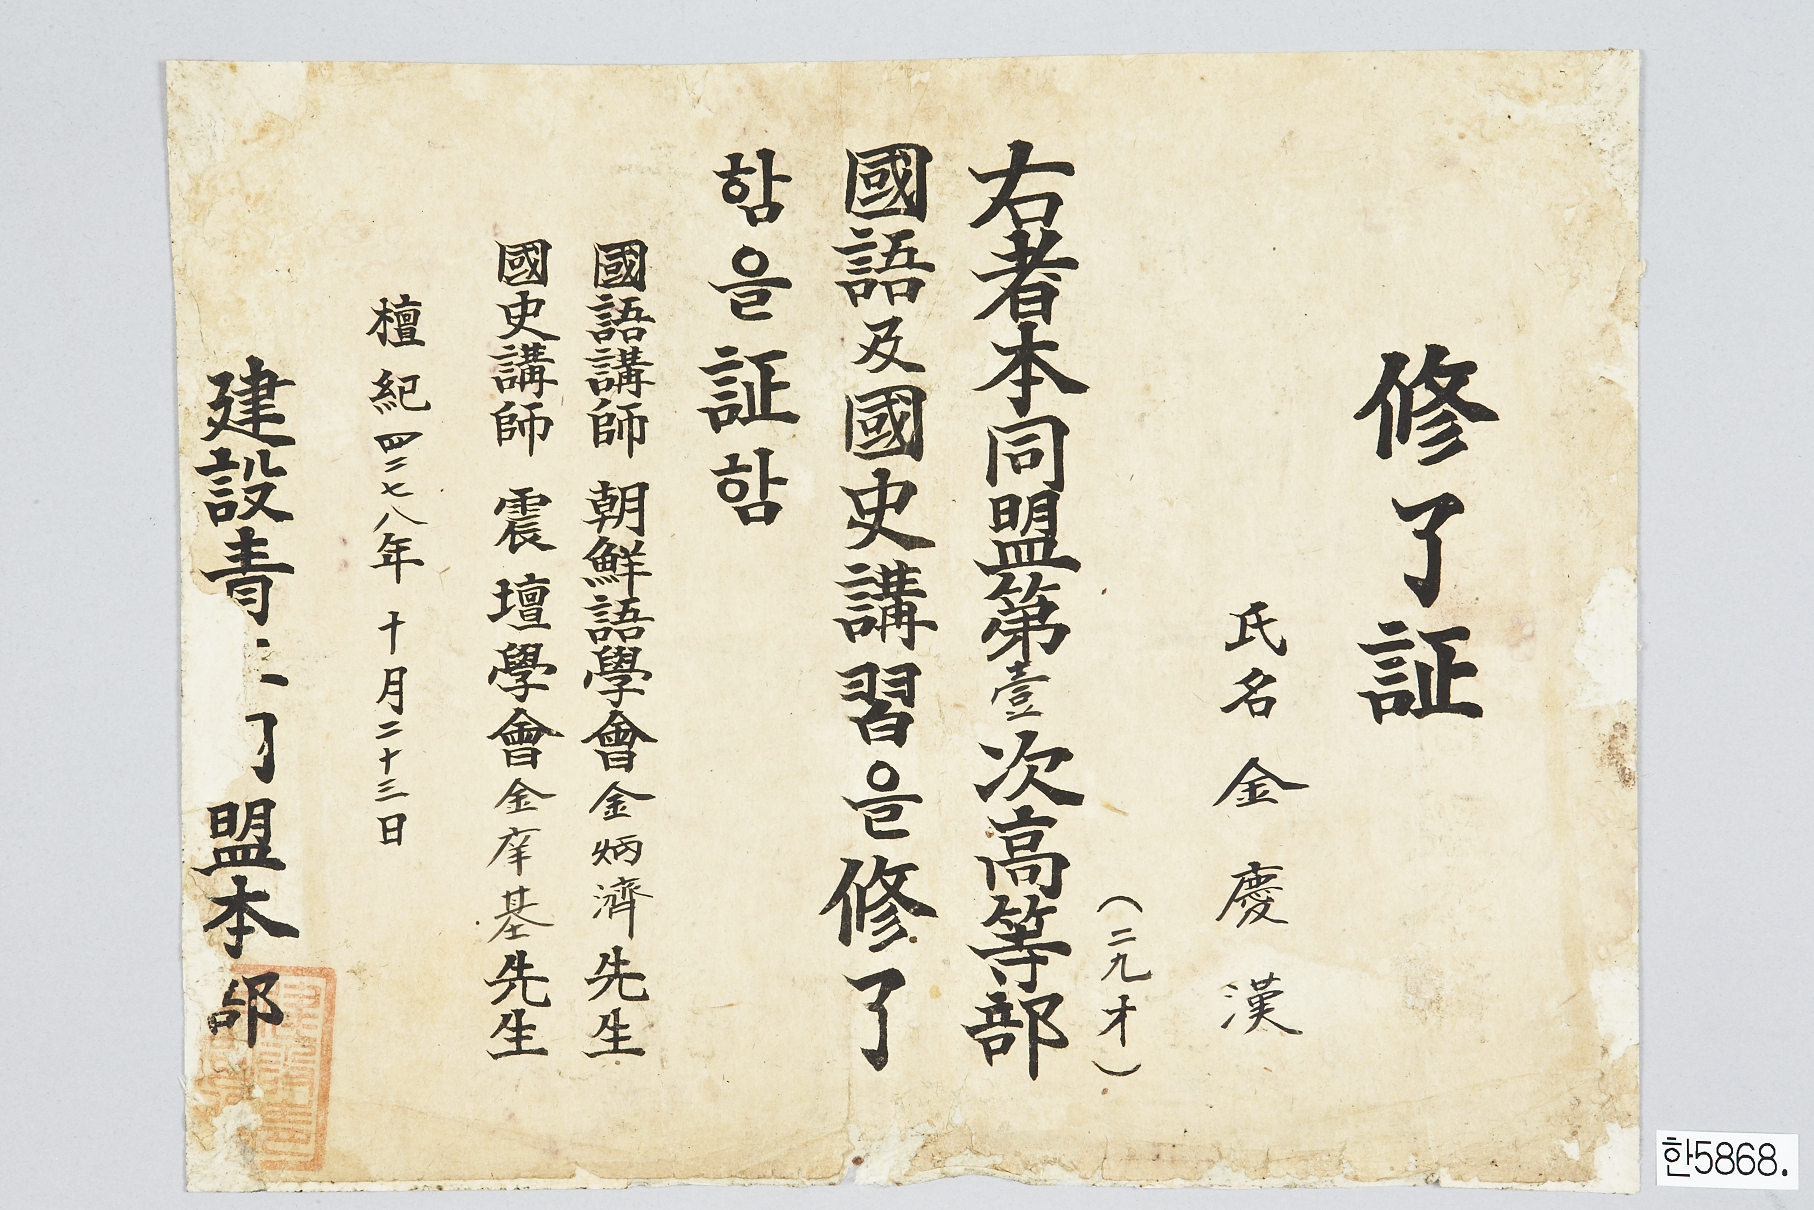 修了証
氏名 金慶漢
(二九才)
右者本同盟第壹次高等部
國語及國史講習을修了
함을証함
國語講師 朝鮮語學會 金炳濟先生
國史講師 震壇學會 金庠基先生
檀紀四二七八年十月二十三日
建設青 盟本部
한5868.